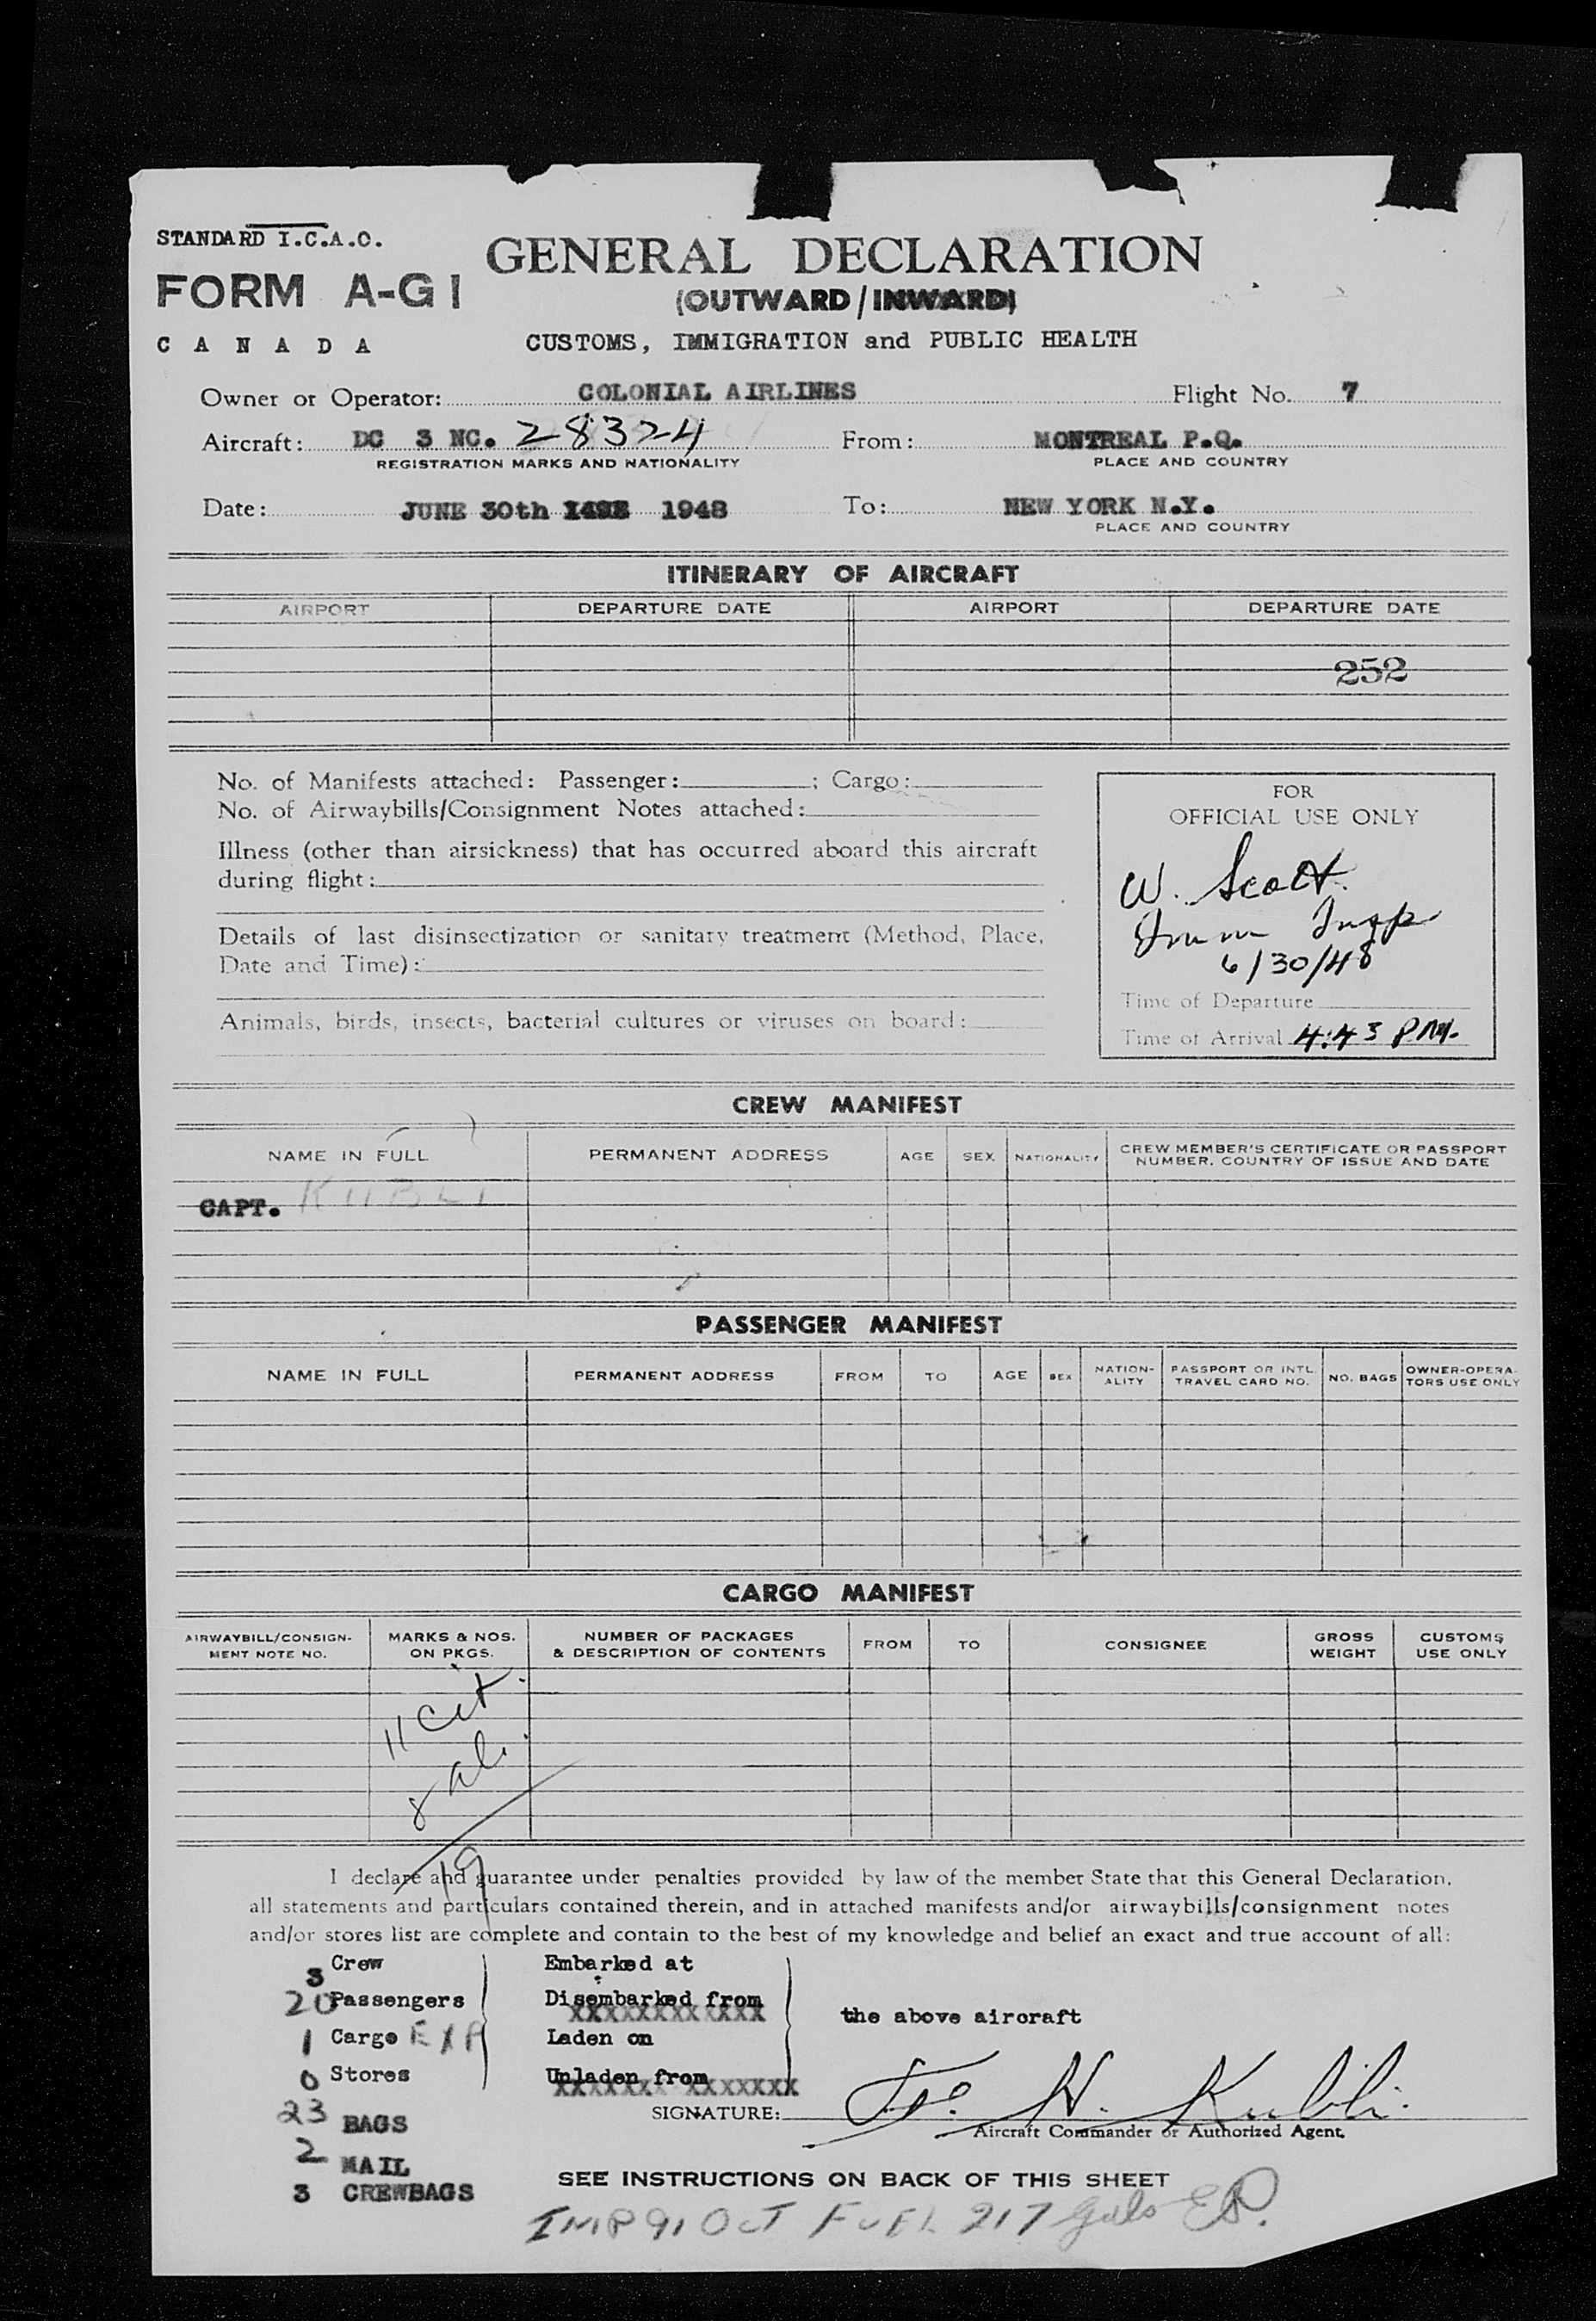 STANDARD I.C.A.O.
FORM A-G1
CANADA
GENERAL DECLARATION
(OUTWARD/INWARD)
CUSTOMS, IMMIGRATION and PUBLIC HEALTH
Owner or Operator: COLONIAL AIRLINES Flight No. 7
Aircraft: DC 3 NC. 28324 From: MONTREAL P.Q.
REGISTRATION MARKS AND NATIONALITY PLACE AND COUNTRY
Date: JUNE 30th 1948 To: NEW YORK N.Y.
PLACE AND COUNTRY
ITINERARY OF AIRCRAFT
AIRPORT DEPARTURE DATE AIRPORT DEPARTURE DATE
252
No. of Manifests attached: Passenger: ; Cargo:
No. of Airwaybills/Consignment Notes attached:
Illness (other than airsickness) that has occurred aboard this aircraft
during flight:
Details of last disinsectization or sanitary treatment (Method, Place,
Date and Time):
Animals, birds, insects, bacterial cultures or viruses on board:
FOR
OFFICIAL USE ONLY
W. Scott.
Imm Insp
6/30/48
Time of Departure
Time of Arrival 4:43 PM.
CREW MANIFEST
NAME IN FULL PERMANENT ADDRESS AGE SEX NATIONALITY CREW MEMBER'S CERTIFICATE OR PASSPORT
NUMBER, COUNTRY OF ISSUE AND DATE
CAPT. KUBLI
PASSENGER MANIFEST
NAME IN FULL PERMANENT ADDRESS FROM TO AGE SEX NATION-
ALITY PASSPORT OR INTL
TRAVEL CARD NO. NO. BAGS OWNER-OPERA-
TORS USE ONLY
CARGO MANIFEST
AIRWAYBILL/CONSIGN-
MENT NOTE NO. MARKS & NOS.
ON PKGS. NUMBER OF PACKAGES
& DESCRIPTION OF CONTENTS FROM TO CONSIGNEE GROSS
WEIGHT CUSTOMS
USE ONLY
11 Cit.
8 al.
19
I declare and guarantee under penalties provided by law of the member State that this General Declaration,
all statements and particulars contained therein, and in attached manifests and/or airwaybills/consignment notes
and/or stores list are complete and contain to the best of my knowledge and belief an exact and true account of all:
3 Crew Embarked at
20 Passengers Disembarked from
the above aircraft
1 Cargo EXP Laden on
0 Stores Unladen from
23 BAGS
SIGNATURE: H. Kubli.
Aircraft Commander or Authorized Agent.
2 MAIL
3 CREWBAGS
SEE INSTRUCTIONS ON BACK OF THIS SHEET
IMP 91 OCT FUEL 217 gals